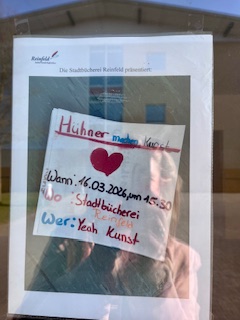 Reinfeld
Die Stadtbücherei Reinfeld präsentiert:
Hühner machen Kunst
Wann: 16.03.2026, um 15:30
Wo: Stadtbücherei
Reinfeld
Wer: Yeah Kunst